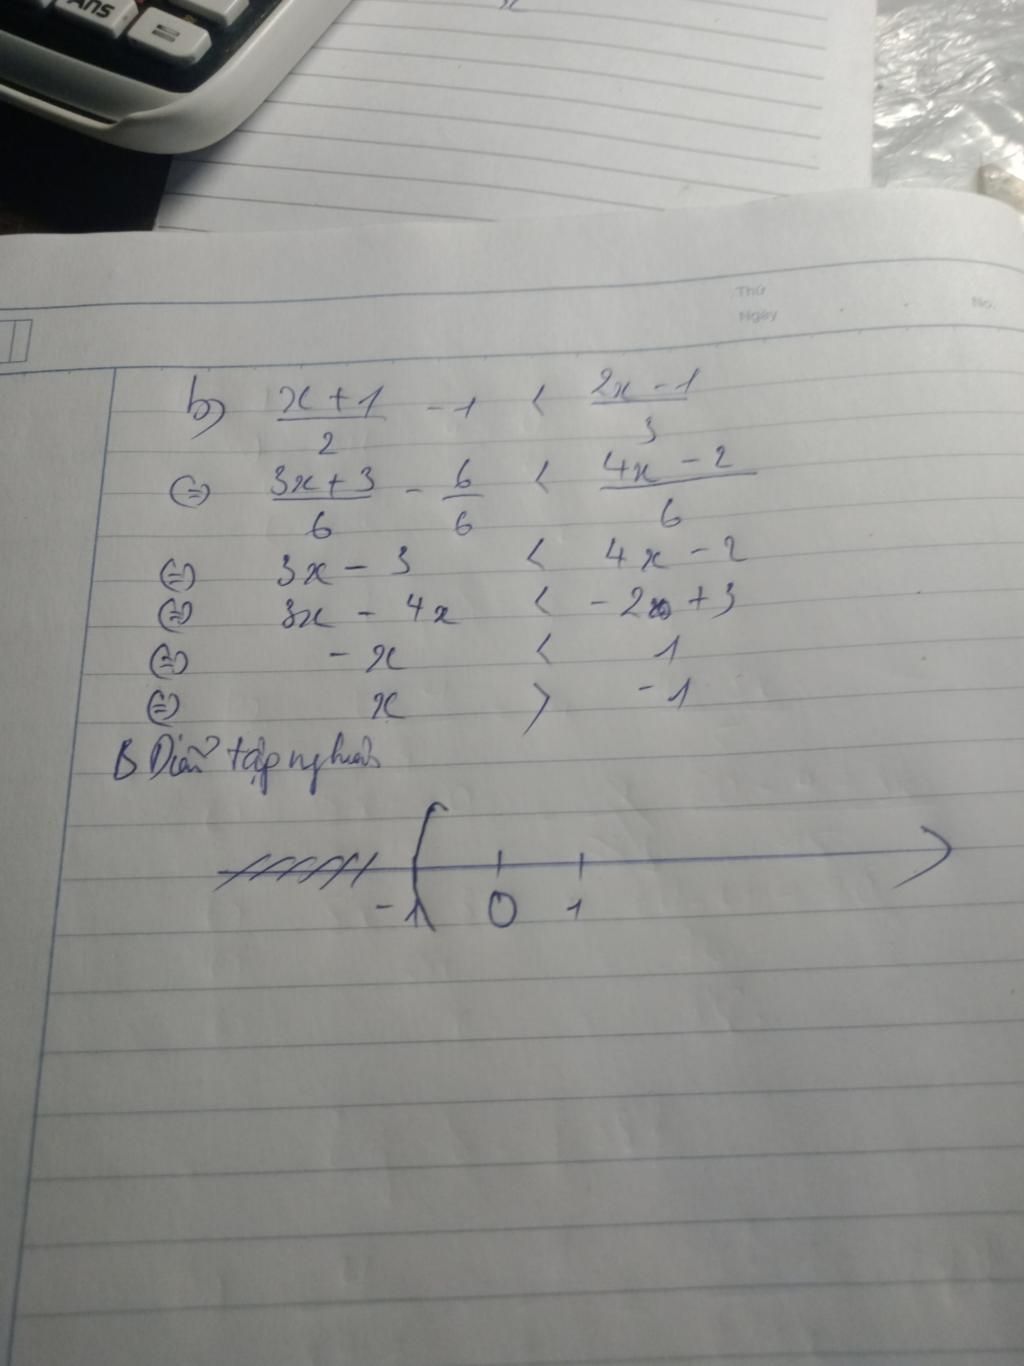 Ans
=
Thứ
Ngày
No.
b) x + 1 / 2 - 1 < 2x - 1 / 3
(=) 3x + 3 / 6 - 6 / 6 < 4x - 2 / 6
(=) 3x - 3 < 4x - 2
(=) 3x - 4x < - 2 + 3
(=) - x < 1
(=) x > - 1
B Diễn tập nghiệm
- 1 0 1